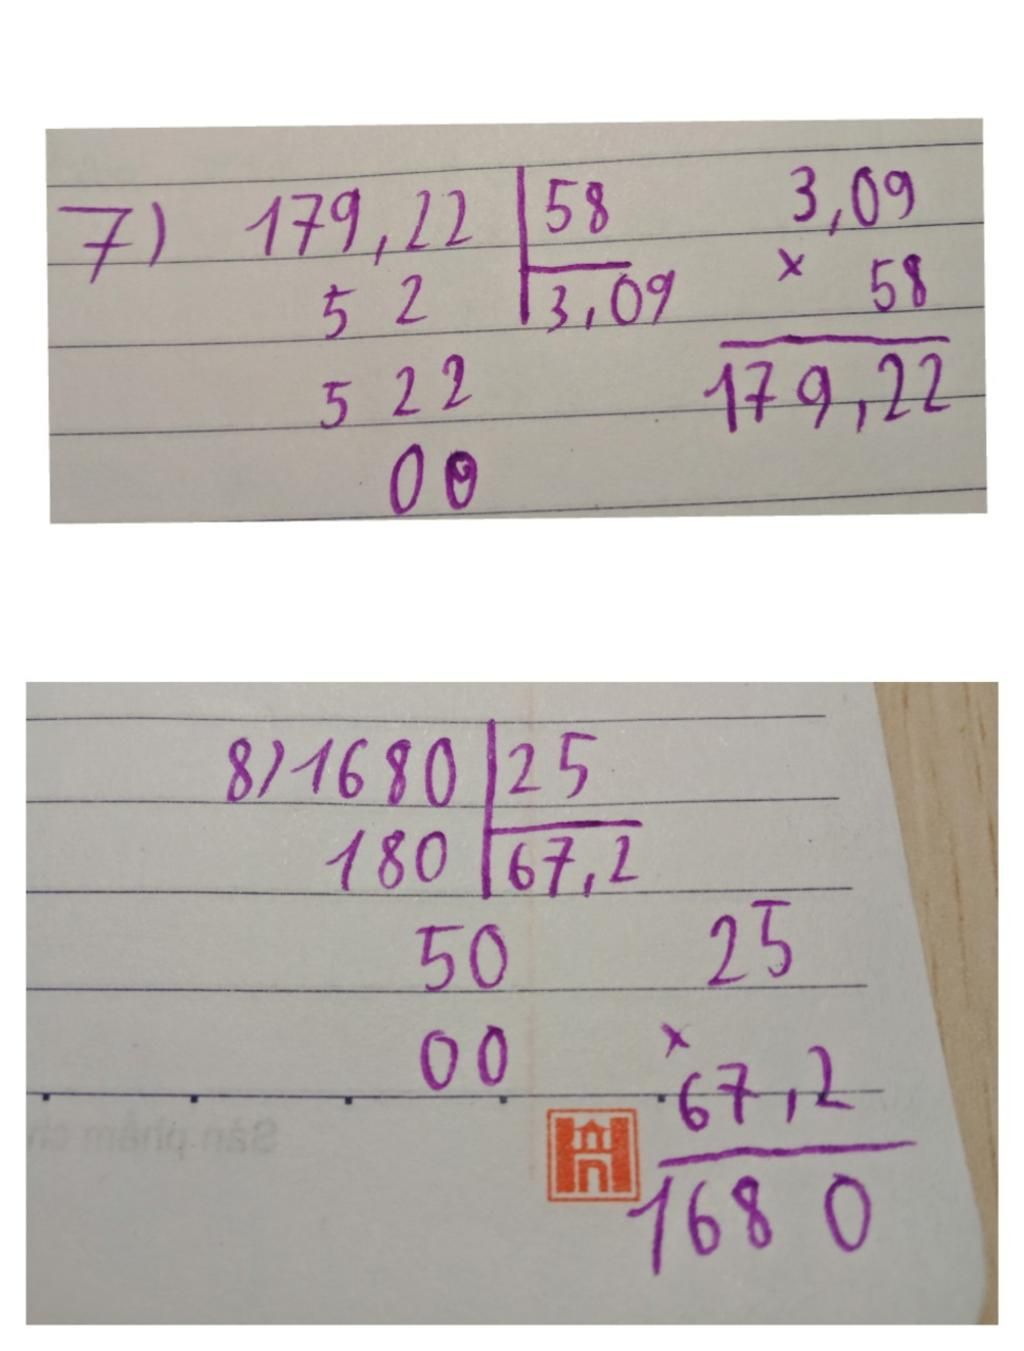 7) 179,22 58 3,09
5 2 3,09 x 58
5 22 179,22
00
8) 1680 25
180 67,2
50 25
00 x
67,2
Sản phẩm ch
1680